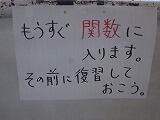 もうすぐ 関数に
入ります。
その前に復習して
おこう。